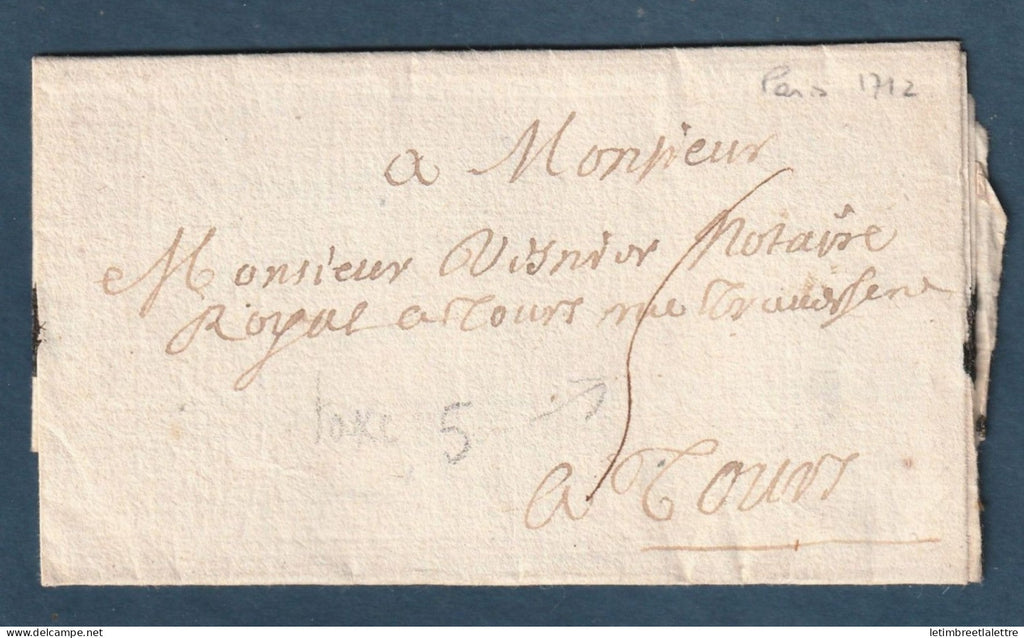 Paris 1712
a Monsieur
Monsieur Visnier Notaire
Royal a Tours rue Traversene
taxe 5
a Tours
letimbreetlalettre